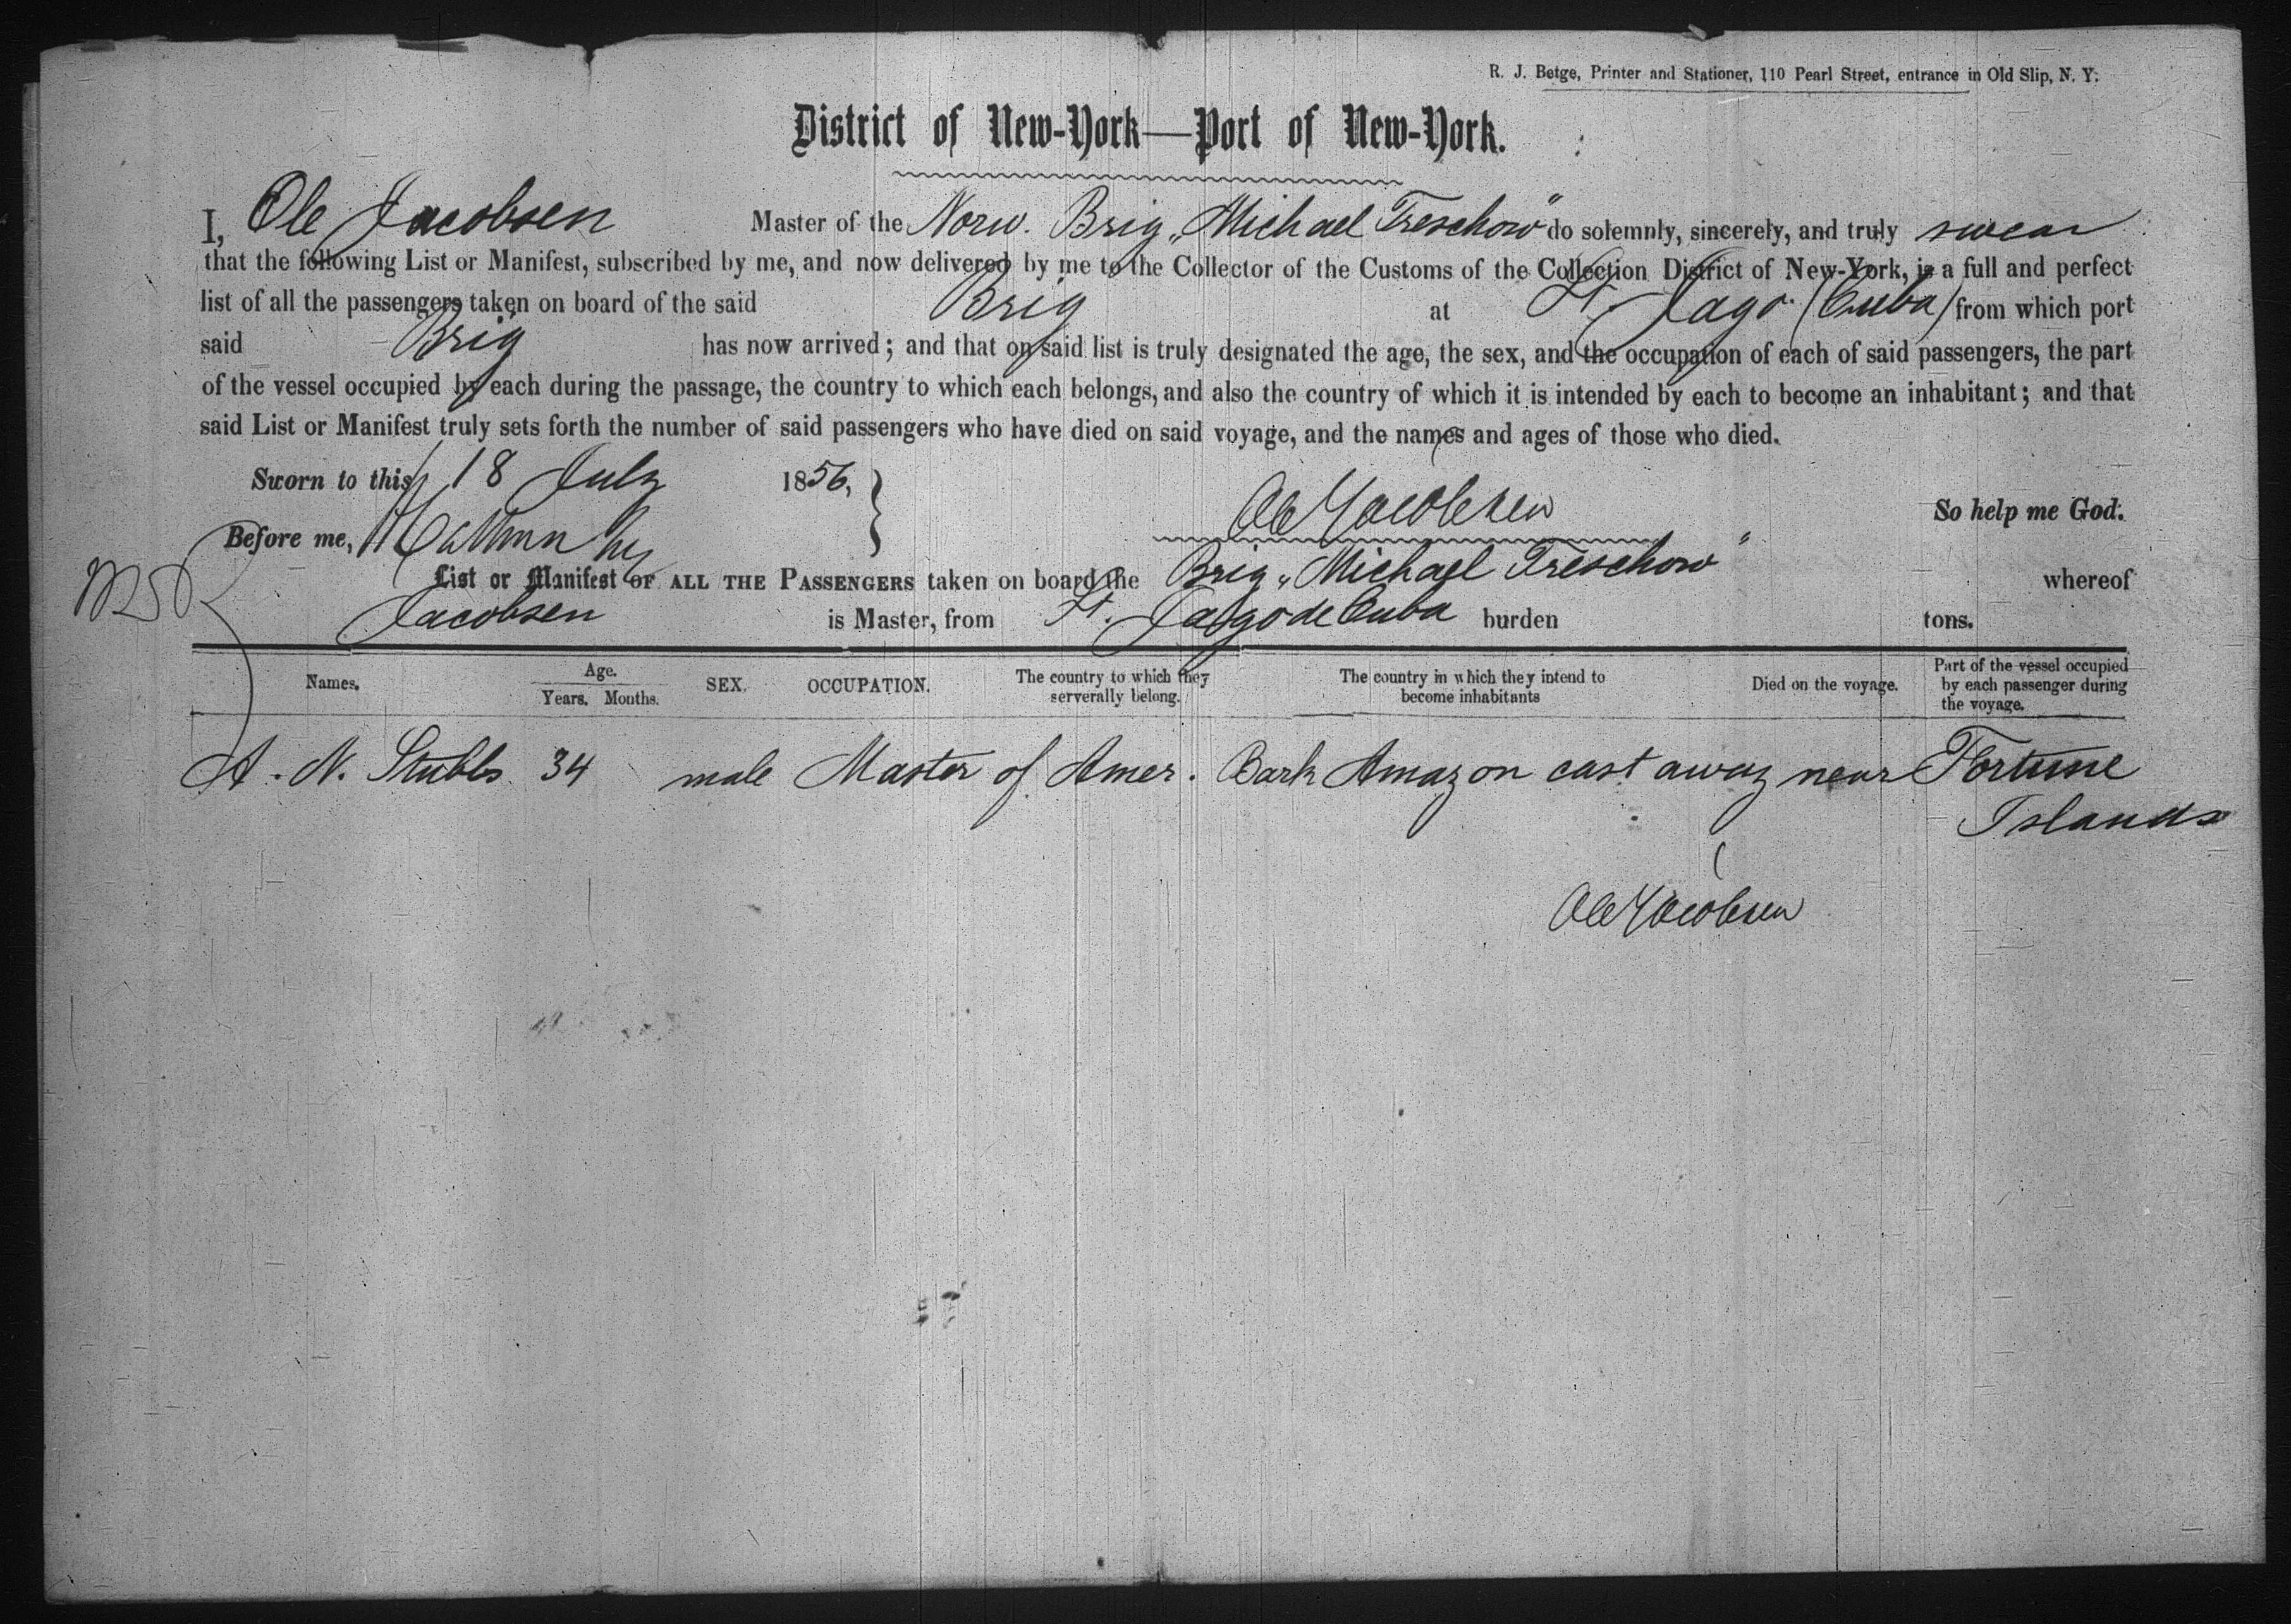 R. J. Betge, Printer and Stationer, 110 Pearl Street, entrance in Old Slip, N. Y.
District of New-York—Port of New-York.
I, Ole Jacobsen Master of the Norw. Brig „Michael Treschow" do solemnly, sincerely, and truly swear
that the following List or Manifest, subscribed by me, and now delivered by me to the Collector of the Customs of the Collection District of New-York, is a full and perfect
list of all the passengers taken on board of the said Brig at St. Jago (Cuba) from which port
said Brig has now arrived; and that on said list is truly designated the age, the sex, and the occupation of each of said passengers, the part
of the vessel occupied by each during the passage, the country to which each belongs, and also the country of which it is intended by each to become an inhabitant; and that
said List or Manifest truly sets forth the number of said passengers who have died on said voyage, and the names and ages of those who died.
Sworn to this 18 July 1856,
Ole Jacobsen So help me God.
Before me,
List or Manifest OF ALL THE PASSENGERS taken on board the Brig „Michael Treschow" whereof
Jacobsen is Master, from St. Jago de Cuba burden tons.
Names. Age. Years. Months. SEX. OCCUPATION. The country to which they serverally belong. The country in which they intend to become inhabitants Died on the voyage. Part of the vessel occupied by each passenger during the voyage.
A. N. Stubbs 34 male Master of Amer. Bark Amazon cast away near Fortune
Islands
Ole Jacobsen